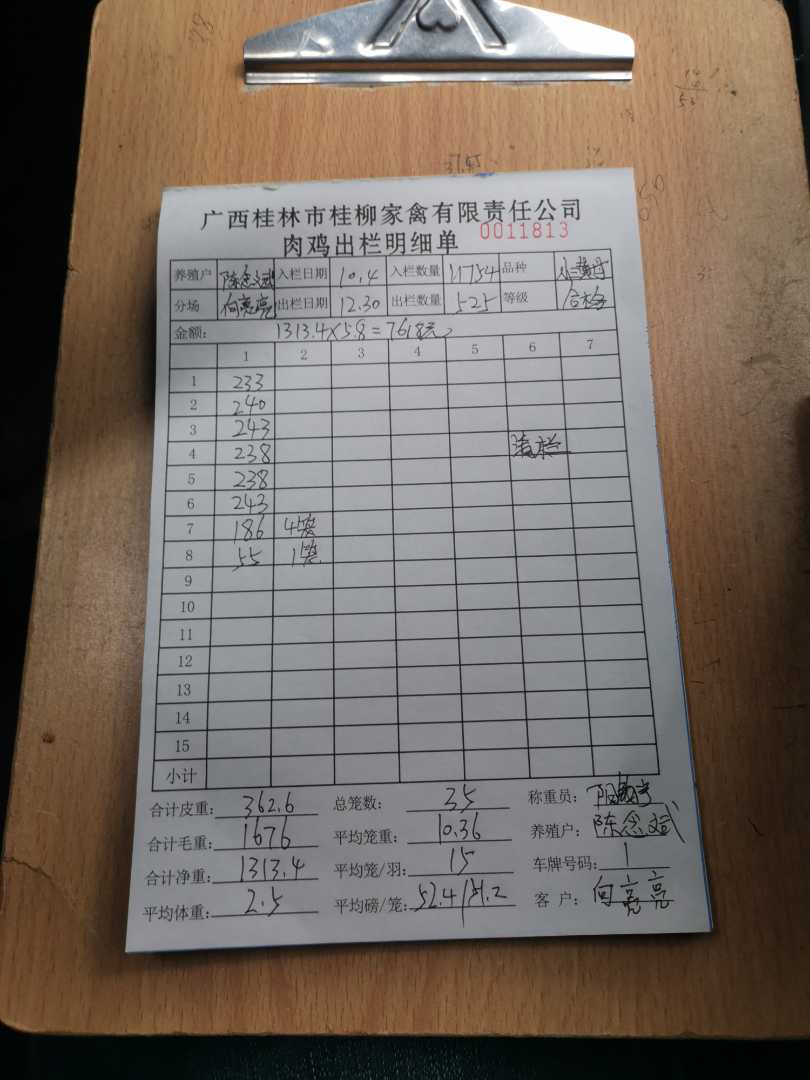 广西桂林市桂柳家禽有限责任公司
肉鸡出栏明细单 0011813
养殖户 陈念斌 入栏日期 10.4 入栏数量 11754 品种
分场 向亮亮 出栏日期 12.30 出栏数量 525 等级 合格
金额: 1313.4×5.8=7618元
1 2 3 4 5 6 7
1 233
2 240
3 243
4 238 清栏
5 238
6 243
7 186 4笼
8 55 1笼
9
10
11
12
13
14
15
小计
合计皮重: 362.6 总笼数: 35 称重员:
合计毛重: 1676 平均笼重: 10.36 养殖户: 陈念斌
合计净重: 1313.4 平均笼/羽: 15 车牌号码: 1
平均体重: 2.5 平均磅/笼: 52.4/51.2 客户: 向亮亮